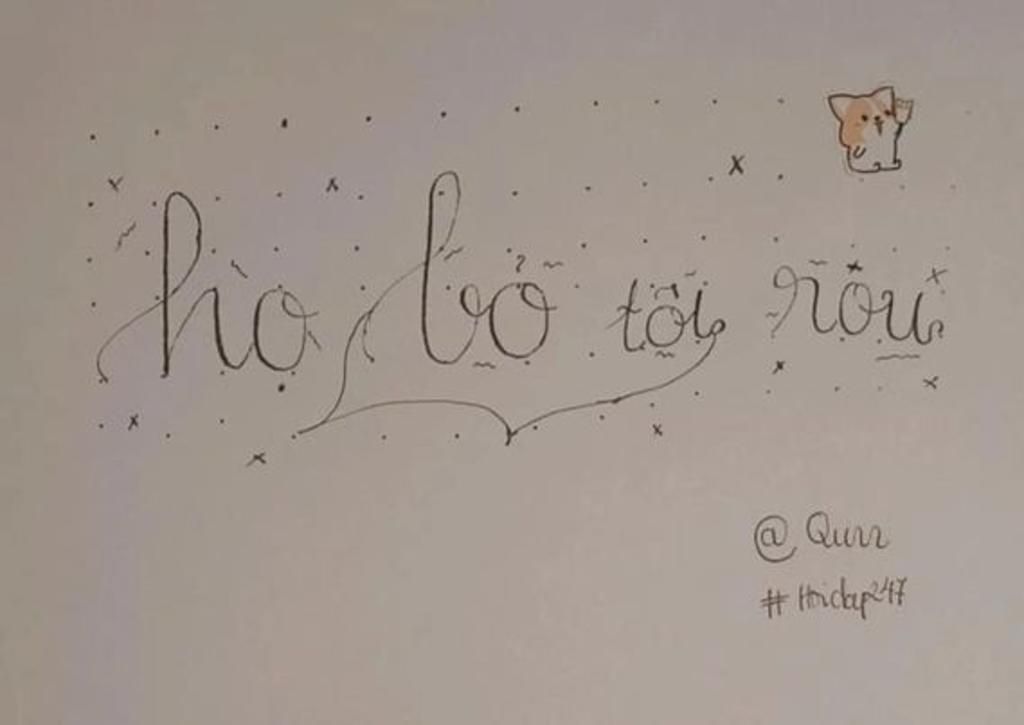 họ bỏ tôi rồi
@ Qurr
# Hoidap247